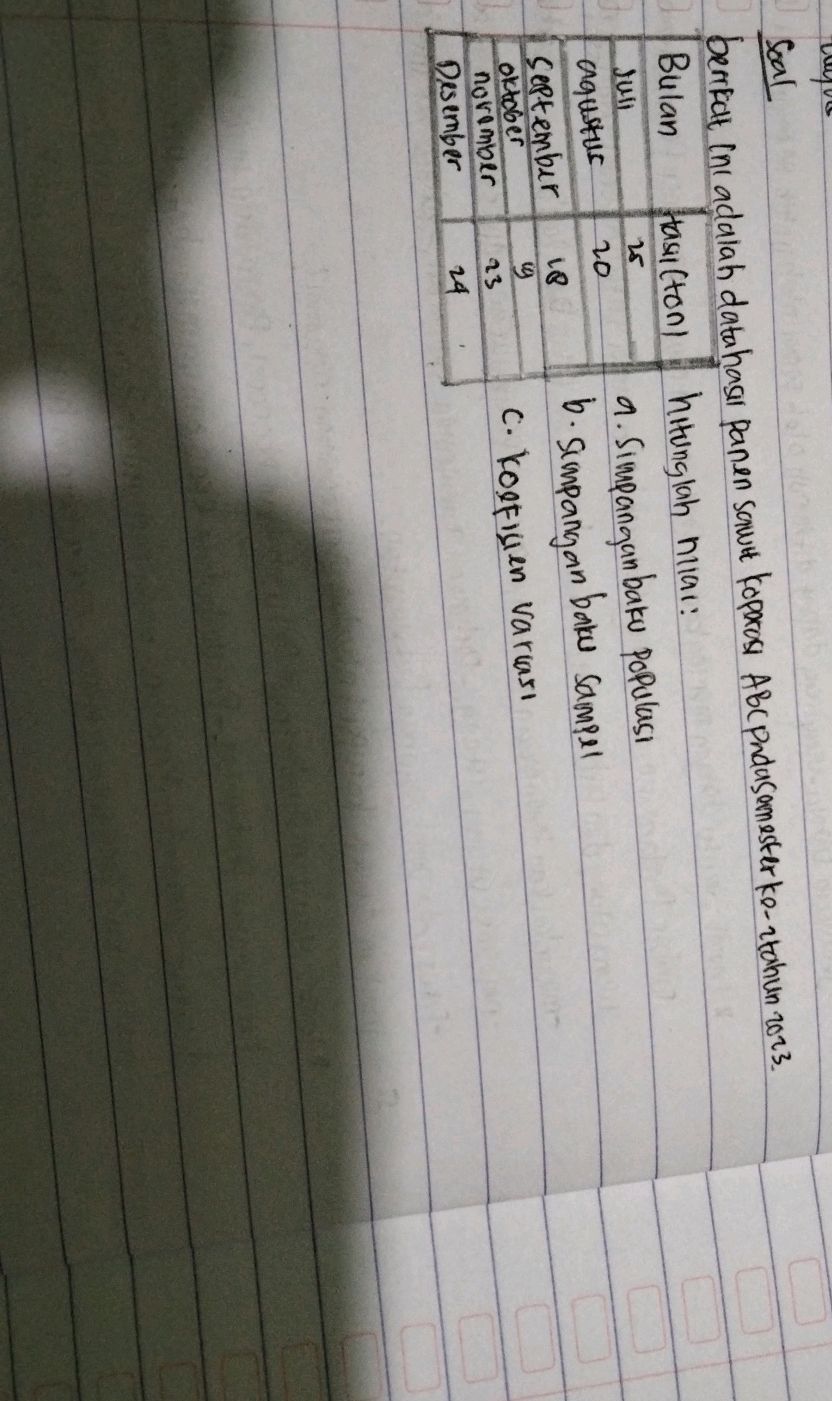 Soal
berikut ini adalah data hasil panen sawit koperasi ABC pada Semester ke-2 tahun 2023.
Bulan Hasil (ton) hitunglah nilai:
Juli 25 a. Simpangan baku populasi
agustus 20 b. simpangan baku sampel
September
oktober c. koefisien variasi
november 23
Desember 24